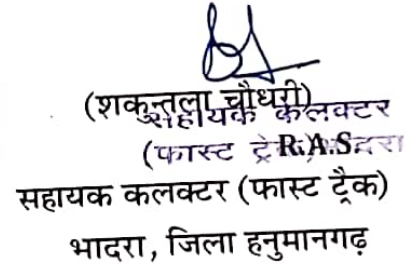 (शकुन्तला चौधरी)
सहायक कलक्टर
(फास्ट ट्रेक) भादरा
R.A.S.
सहायक कलक्टर (फास्ट ट्रैक)
भादरा, जिला हनुमानगढ़